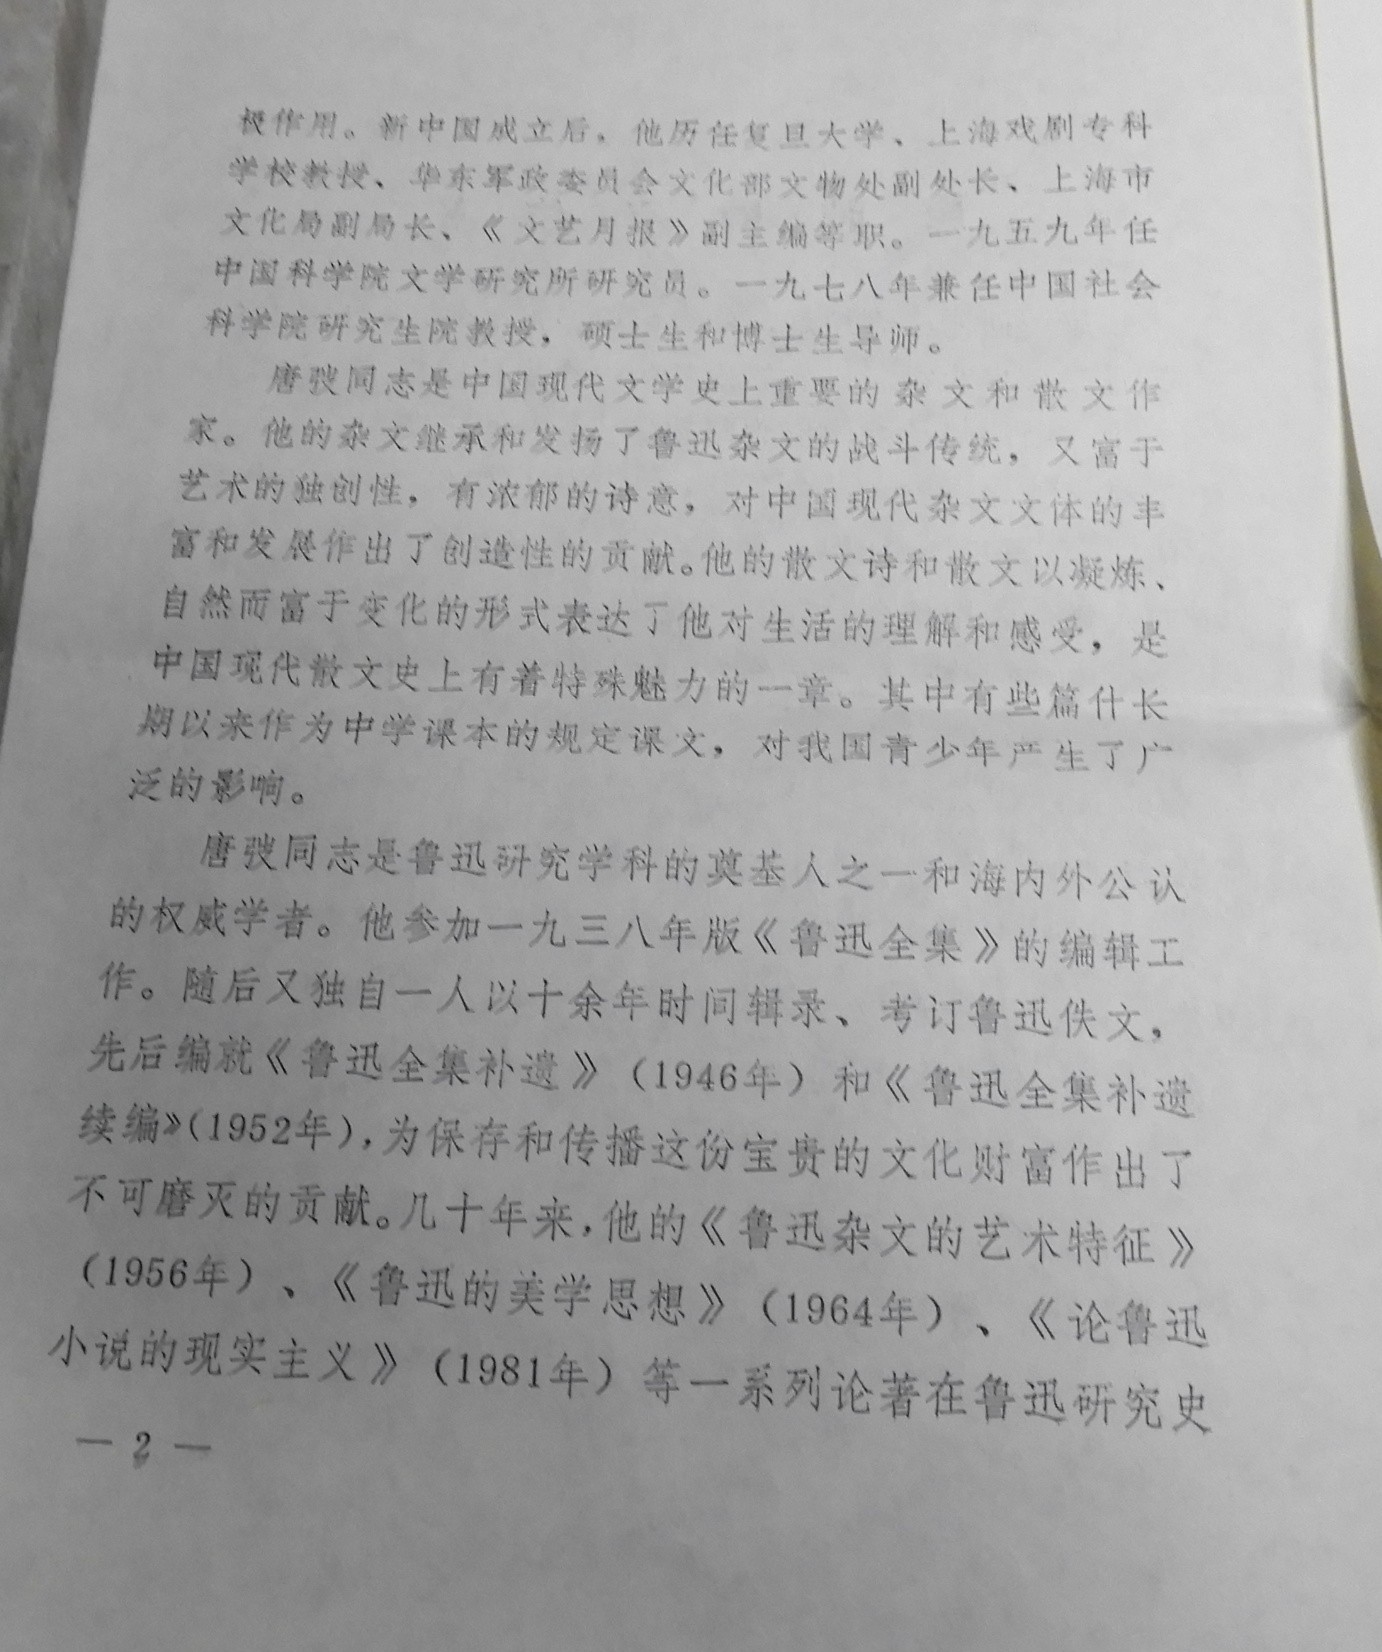 极作用。新中国成立后，他历任复旦大学、上海戏剧专科
学校教授、华东军政委员会文化部文物处副处长、上海市
文化局副局长、《文艺月报》副主编等职。一九五九年任
中国科学院文学研究所研究员。一九七八年兼任中国社会
科学院研究生院教授，硕士生和博士生导师。
唐弢同志是中国现代文学史上重要的杂文和散文作
家。他的杂文继承和发扬了鲁迅杂文的战斗传统，又富于
艺术的独创性，有浓郁的诗意，对中国现代杂文文体的丰
富和发展作出了创造性的贡献。他的散文诗和散文以凝炼、
自然而富于变化的形式表达了他对生活的理解和感受，是
中国现代散文史上有着特殊魅力的一章。其中有些篇什长
期以来作为中学课本的规定课文，对我国青少年产生了广
泛的影响。
唐弢同志是鲁迅研究学科的奠基人之一和海内外公认
的权威学者。他参加一九三八年版《鲁迅全集》的编辑工
作。随后又独自一人以十余年时间辑录、考订鲁迅佚文，
先后编就《鲁迅全集补遗》（1946年）和《鲁迅全集补遗
续编》（1952年），为保存和传播这份宝贵的文化财富作出了
不可磨灭的贡献。几十年来，他的《鲁迅杂文的艺术特征》
（1956年）、《鲁迅的美学思想》（1964年）、《论鲁迅
小说的现实主义》（1981年）等一系列论著在鲁迅研究史
— 2 —